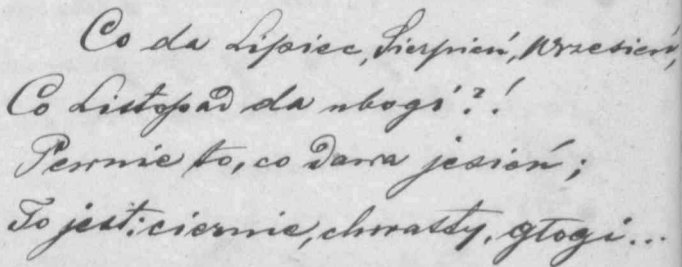 Co da Lipiec, Sierpień, Wrzesień,
Co Listopad da ubogi?!
Pewnie to, co dawa jesień;
To jest: ciernie, chwasty, głogi...